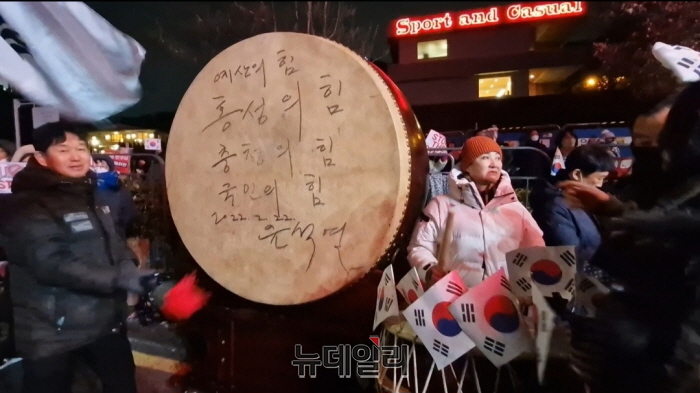 Sport and Casual
예산의 힘
홍성의 힘
충청의 힘
국민의 힘
2022. 2. 22.
윤석열
뉴데일리